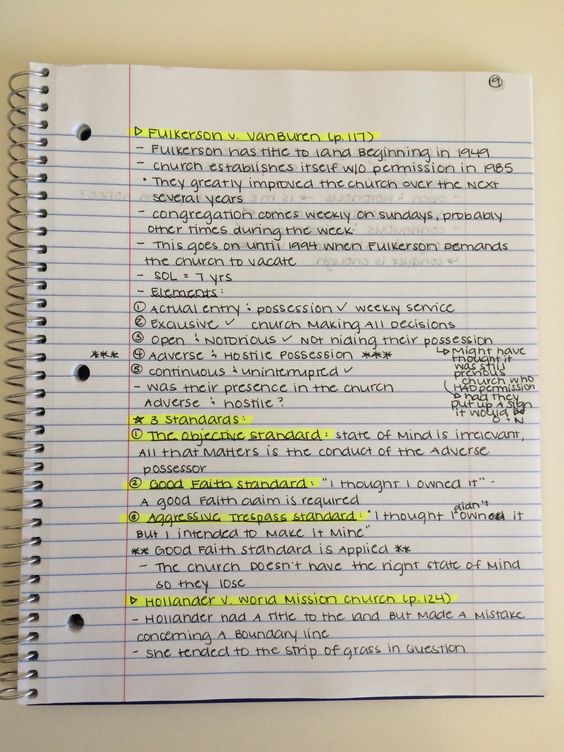 9
▷ Fulkerson v. VanBuren (p.117)
- Fulkerson has title to land Beginning in 1949
- church establishes itself w/o permission in 1985
• They greatly improved the church over the next
several years
- congregation comes weekly on sundays, probably
other times during the week
- This goes on until 1994 when Fulkerson Demands
the church to vacate
- SOL = 7 yrs
- Elements:
① Actual entry & possession ✓ weekly service
② Exclusive ✓ church Making All Decisions
③ Open & Notorious ✓ Not hiding their possession
*** ④ Adverse & Hostile Possession ***
⑤ continuous & uninterrupted ✓
- was their presence in the church
Adverse & hostile?
↳ Might have
thought it
was still
previous
church who
HAD permission
↳ had they
put up a sign
it would be
O & N
★ 3 standards:
① The objective standard: state of Mind is irrelevant,
All that Matters is the conduct of the Adverse
possessor
② Good Faith standard: "I thought I owned it" -
A good Faith claim is required
③ Aggressive Trespass standard: "I thought I didn't own it
But I intended to Make it Mine"
** Good Faith standard is Applied **
- The church Doesn't have the right state of Mind
so they lose
▷ Hollander v. World Mission church (p.124)
- Hollander had A title to the land But Made A Mistake
concerning A Boundary line
- she tended to the strip of grass in Question